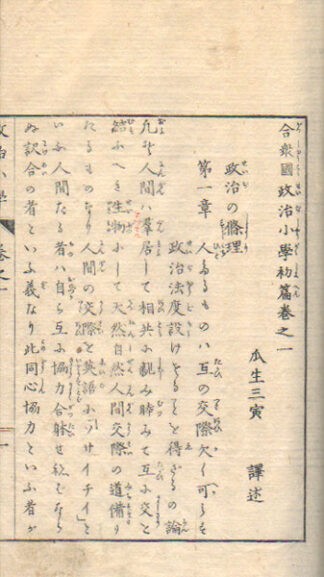 合衆國政治小學初篇巻之一
瓜生三寅 譯述
政治の條理
第一章 人たるものハ互の交際欠く可らず
政治法度設けざることを得ざるの論
凡そ人間ハ羣居して相共に親み睦みて互に交と
結ふべき生物にして天然自然人間交際の道備り
たるものなり人間の交際と英語に「サイチイ」と
いふ人間たる者ハ自ら互に協力合躰せ欲むなら
ぬ訳合の者といふ義なり此同心協力といふ者が
巻之一
一